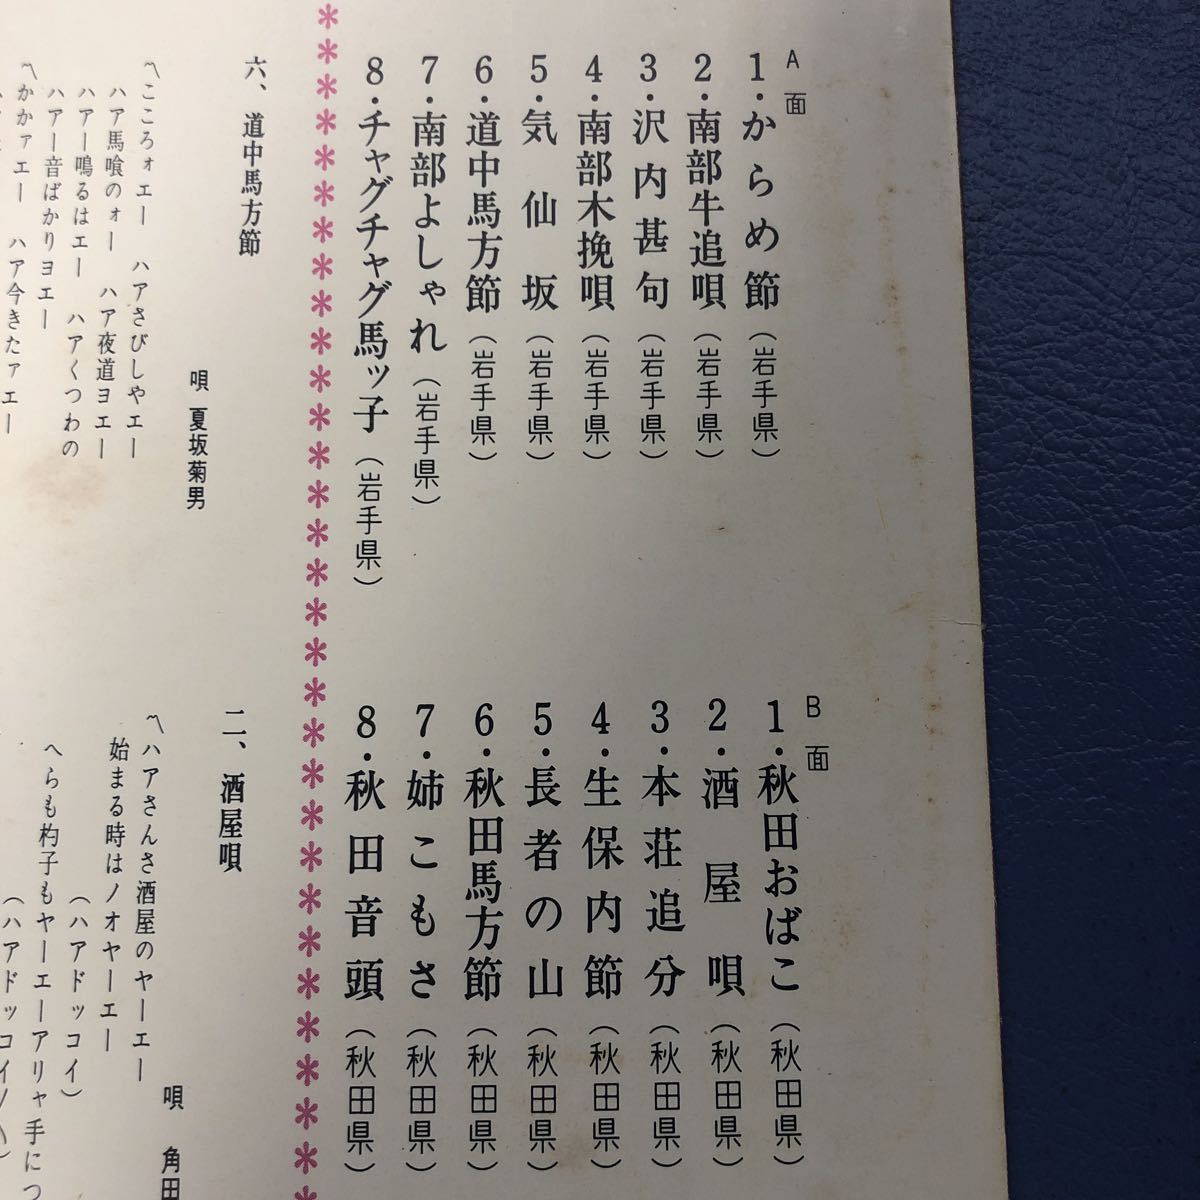 A面
1・からめ節（岩手県）
2・南部牛追唄（岩手県）
3・沢内甚句（岩手県）
4・南部木挽唄（岩手県）
5・気仙坂（岩手県）
6・道中馬方節（岩手県）
7・南部よしゃれ（岩手県）
8・チャグチャグ馬ッ子（岩手県）
B面
1・秋田おばこ（秋田県）
2・酒屋唄（秋田県）
3・本荘追分（秋田県）
4・生保内節（秋田県）
5・長者の山（秋田県）
6・秋田馬方節（秋田県）
7・姉こもさ（秋田県）
8・秋田音頭（秋田県）
＊＊＊＊＊＊＊＊＊＊＊＊＊＊＊＊＊＊＊＊＊＊＊＊＊＊＊＊＊＊
六、道中馬方節
唄 夏坂菊男
〽こころォエー ハアさびしやエー
ハア馬喰のォー ハア夜道ヨエー
ハアー鳴るはエー ハアくつわの
ハアー音ばかりヨエー
〽かかァエー ハア今きたァエー
二、酒屋唄
唄 角田
〽ハアさんさ酒屋のヤーエー
始まる時はノオヤーエー
（ハアドッコイ）
へらも杓子もヤーエーアリャ手につ
（ハアドッコイ